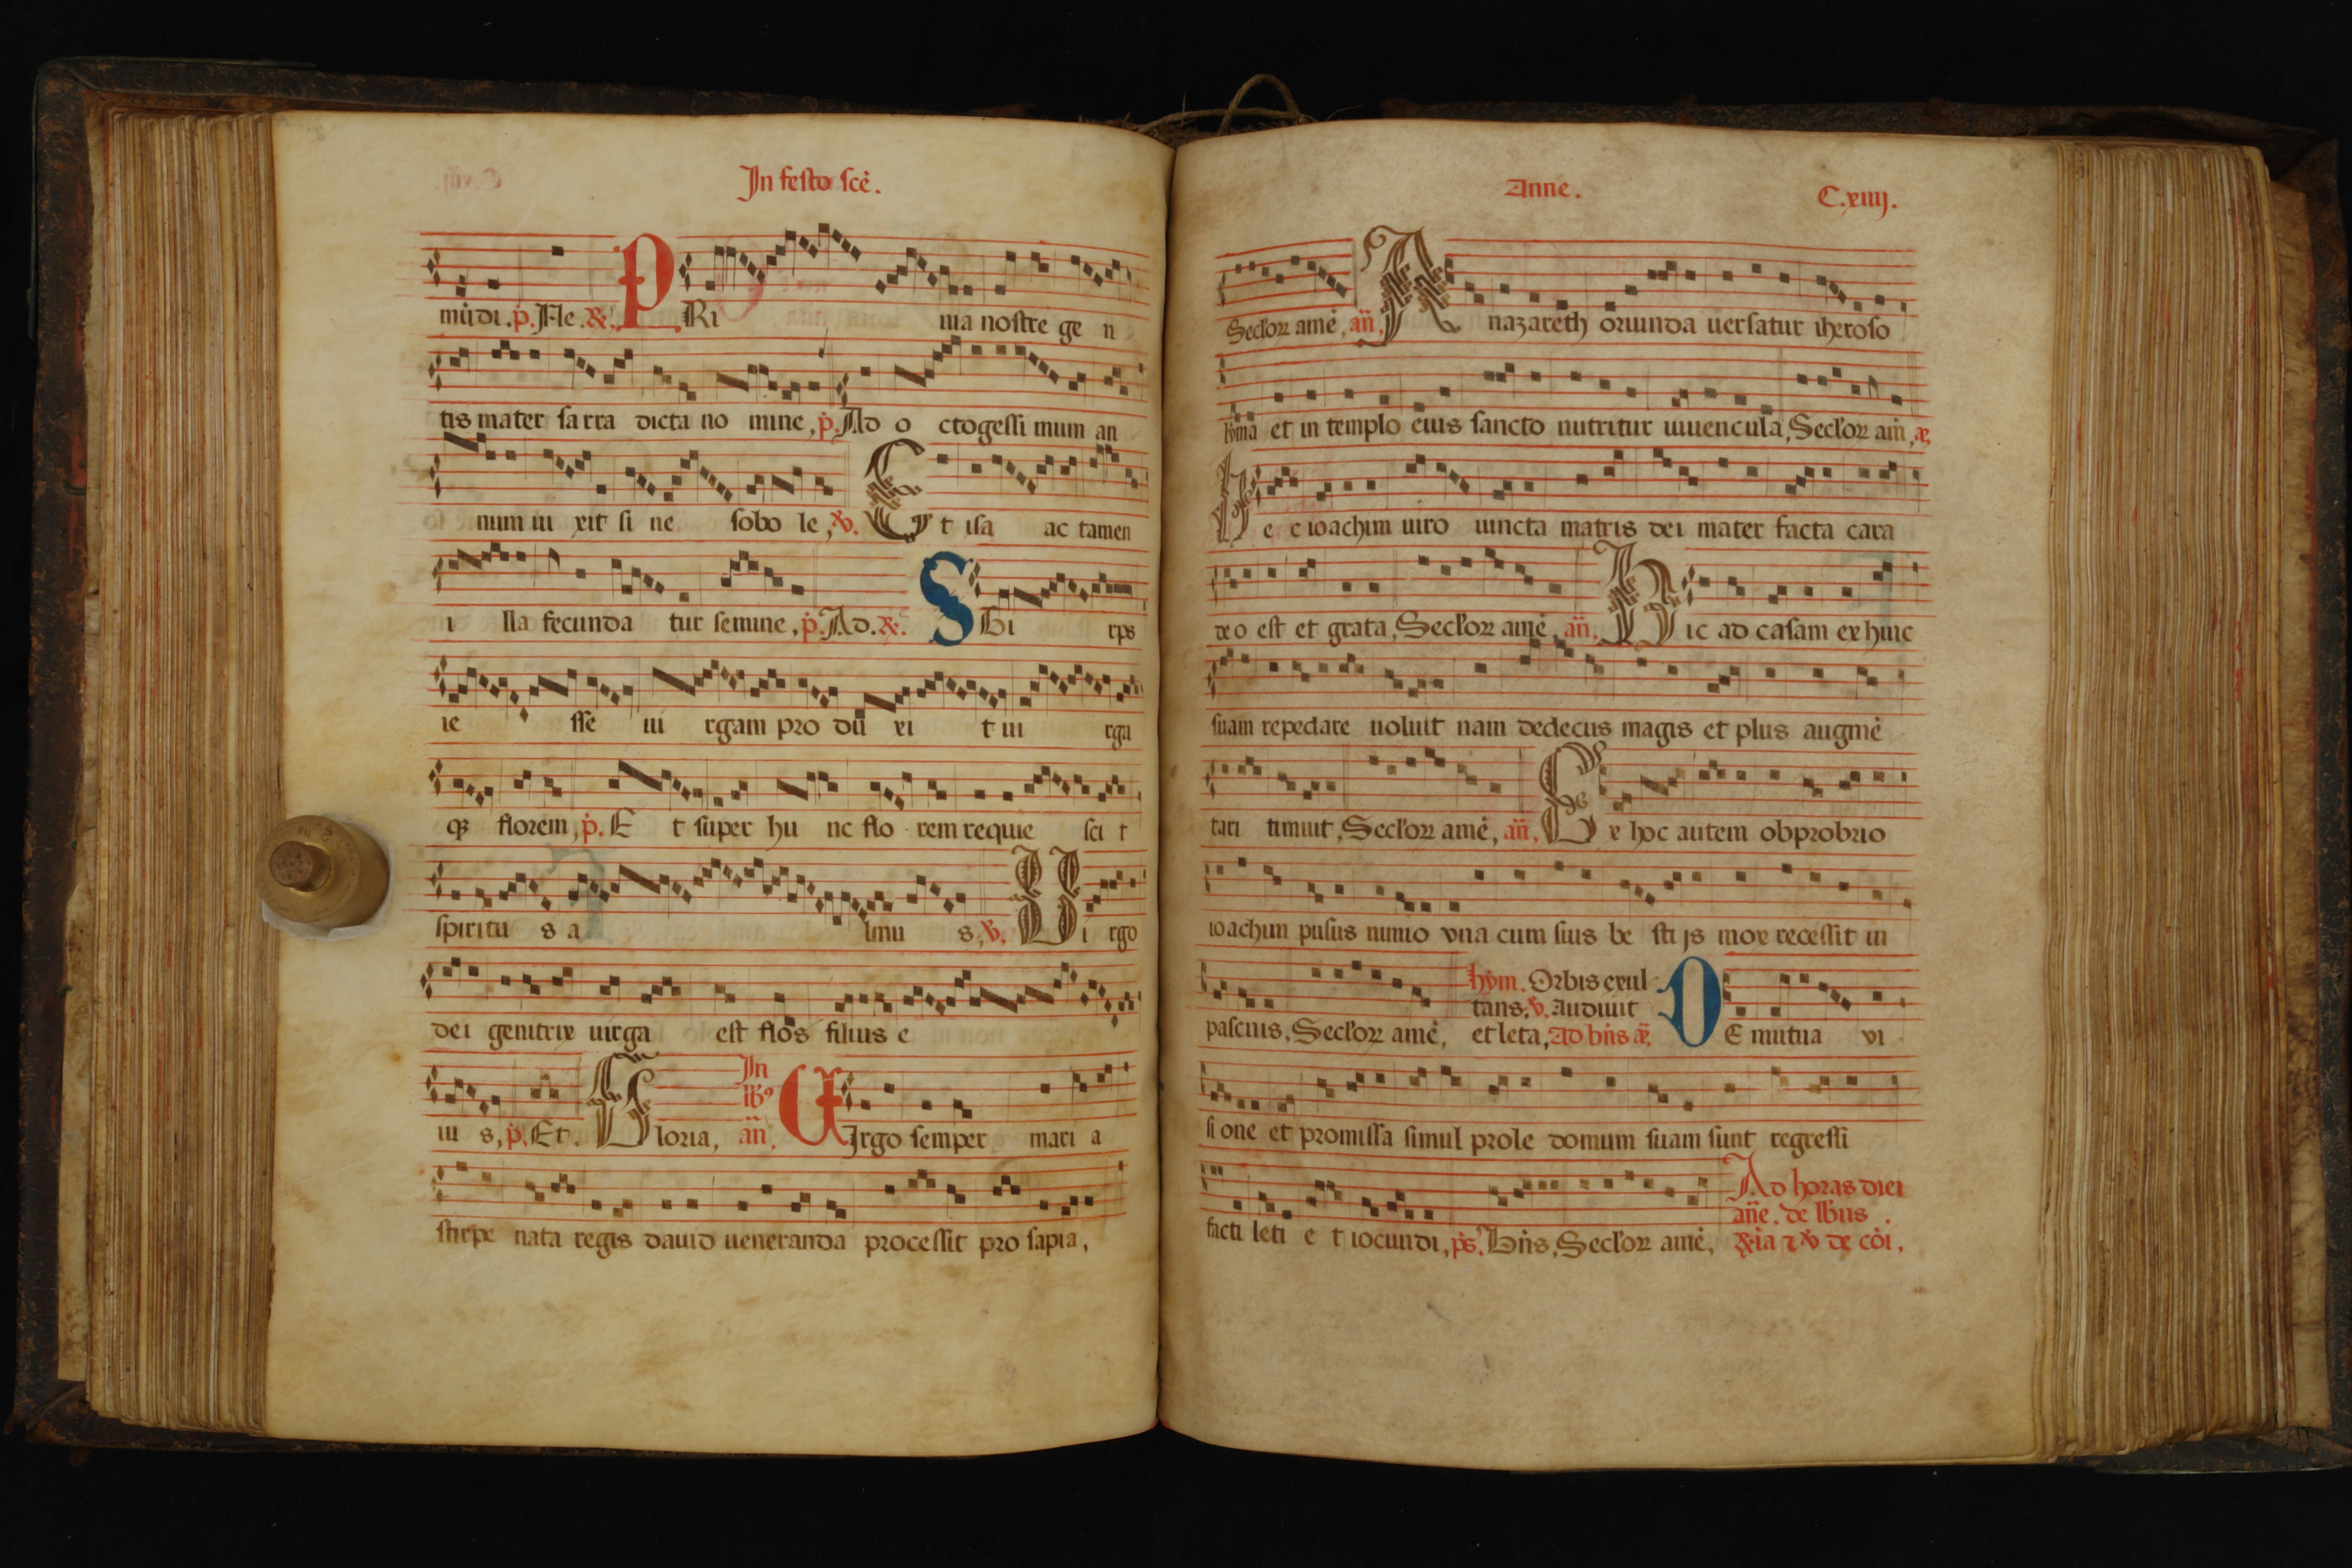 In festo scē.
mūdi. p. Ne. R. PRi ma nostre ge n
tis mater sarra dicta no mine, p. Ad o ctogessi mum an
num ui xit si ne sobo le, V. Et isa ac tamen
i lla fecunda tur semine, p. Ad. R. SBi rps
ie sse ui rgam pro du xi t ui rga
qȝ florem, p. E t super hu nc flo rem requie sci t
spiritu s a lmu s, V. Vi rgo
dei genitrix uirga est flos filius e
iu s, p. Et. Gloria, In
ib⁹
an̄. VIrgo semper mari a
stirpe nata regis dauid ueneranda processit pro sapia,
Anne. C.xiiij.
Secloꝝ amē, an̄. A nazareth oriunda uersatur iheroso
lyma et in templo eius sancto nutritur iuuencula, Secloꝝ am̄, æ,
He c ioachim uiro iuncta matris dei mater facta cara
deo est et grata, Secloꝝ amē, an̄. Hic ad casam ex hinc
suam repedare noluit nam dedecus magis et plus augmē
tari timuit, Secloꝝ amē, an̄, Ex hoc autem obprobrio
ioachim pusus nimio vna cum suis be sti js mox recessit in
pascuis, Secloꝝ amē, hym. Orbis exul
tans, V. Audiuit
et leta, Ad bn̄s æ, DE mutua vi
si one et promissa simul prole domum suam sunt regressi
facti leti e t iocundi, ps. Bn̄s, Secloꝝ amē, Ad horas diei
an̄e. de lbus.
R͞ia ⁊ V de cōi,